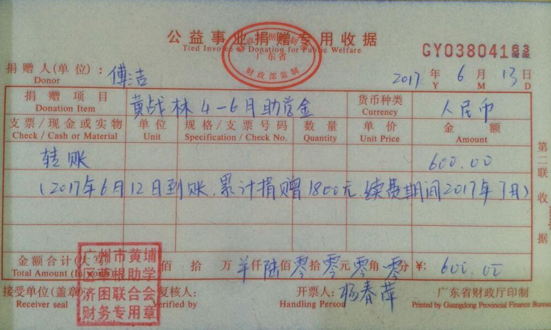 公益事业捐赠专用收据
Tied Invoice of Donation for Public Welfare
广东省
财政部监制
GY03804183
捐赠人(单位): 傅洁
Donor
2017年 6月 13日
Y M D
捐赠项目 黄战林4-6月助学金 货币种类 人民币
Donation Item Currency
支票/现金或实物 单位 规格/支票号码 数量 单价 金额
Check / Cash or Material Unit Specification / Check No. Quantity Unit Price Amount
转账 600.00
(2017年6月12日到账,累计捐赠1800元 续费期间2017年7月)
金额合计(大写) 佰 拾 万 羊仟陆佰零拾零元零角零分 ¥: 600.00
Total Amount (In
广州市黄埔
区草根助学
济困联合会
财务专用章
接受单位(盖章) 复核人: 开票人: 杨春萍 广东省财政厅印制
Receiver seal Verifier Handling Person Printed by Guangdong Provincial Finance Bureau
第二联收据